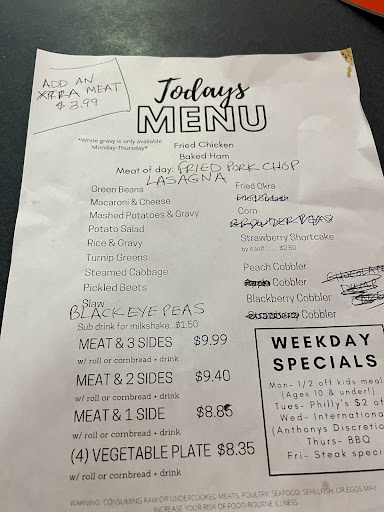 ADD AN
XTRA MEAT
$3.99
Todays
MENU
*White gravy is only available
Monday-Thursday*
Fried Chicken
Baked Ham
Meat of day: FRIED PORK CHOP
LASAGNA
Green Beans
Macaroni & Cheese
Mashed Potatoes & Gravy
Potato Salad
Rice & Gravy
Turnip Greens
Steamed Cabbage
Pickled Beets
Slaw
BLACKEYE PEAS
Fried Okra
Corn
Strawberry Shortcake
by itself ..... $2.50
Peach Cobbler
Cobbler
Blackberry Cobbler
Cobbler
Sub drink for milkshake...$1.50
MEAT & 3 SIDES $9.99
w/ roll or cornbread + drink
MEAT & 2 SIDES $9.40
w/ roll or cornbread + drink
MEAT & 1 SIDE $8.85
w/ roll or cornbread + drink
(4) VEGETABLE PLATE $8.35
w/ roll or cornbread + drink
WEEKDAY
SPECIALS
Mon- 1/2 off kids meal
(Ages 10 & under!)
Tues- Philly's $2 of
Wed- Internationa
(Anthonys Discretio
Thurs- BBQ
Fri- Steak speci
WARNING: CONSUMING RAW OR UNDERCOOKED MEATS, POULTRY, SEAFOOD, SHELLFISH, OR EGGS MAY
INCREASE YOUR RISK OF FOOD-BOURNE ILLNESS